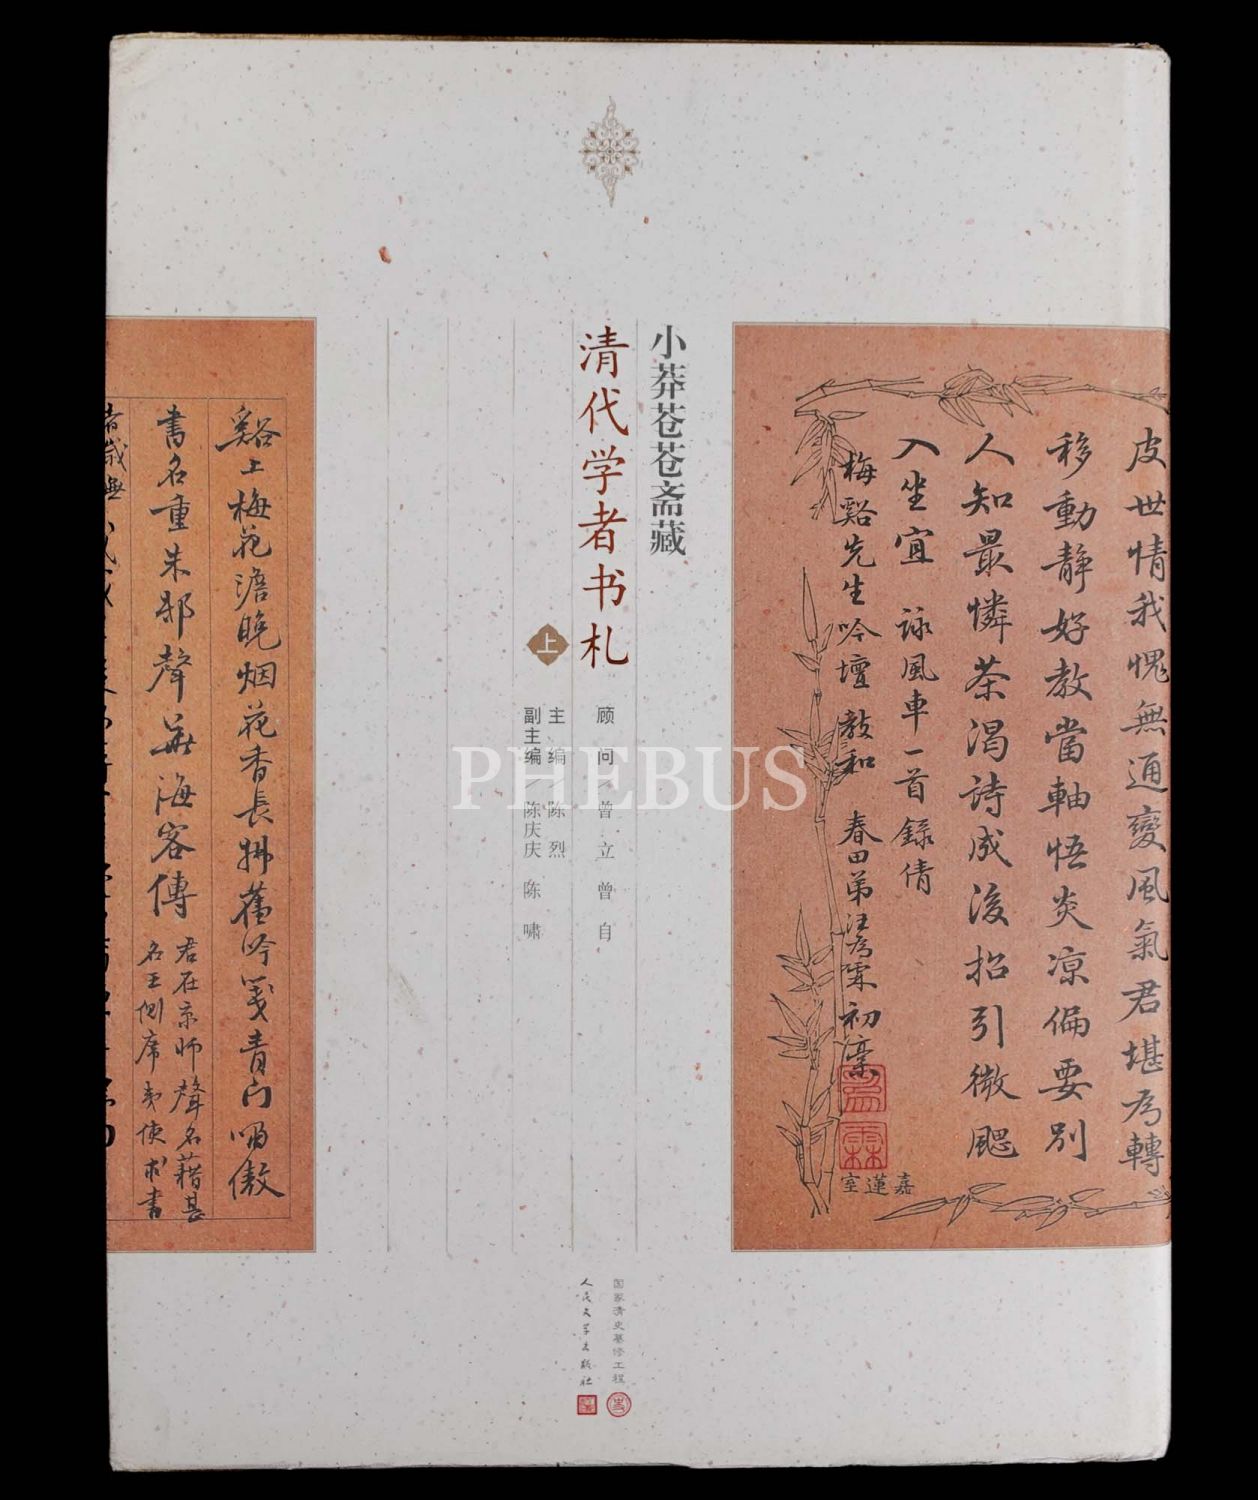 皮世情我愧無通變風氣君堪為轉
移動静好教當軸悟炎凉偏要別
人知最憐茶渴詩成後招引微颸
入坐宜 詠風車一首錄倩
梅谿先生吟壇 教和 春田弟汪為霖初稾
為霖
嘉蓮室
小莽苍苍斋藏
清代学者书札
上
顾问/曾立 曾自
主编/陈烈
副主编/陈庆庆 陈啸
PHEBUS
谿上梅花澹晚烟花香長拂舊吟箋青门嘯傲
書名重朱邸聲華海客傳
君在京師聲名藉甚
名王側席夷使求書
国家清史纂修工程
人民文学出版社